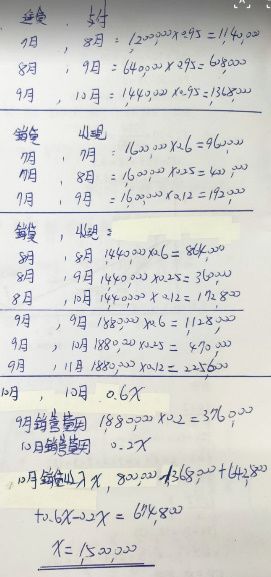 進貨 支付
7月, 8月 = 1,200,000×0.95 = 1,140,000
8月, 9月 = 640,000×0.95 = 608,000
9月, 10月 = 1,440,000×0.95 = 1,368,000
銷貨 收現
7月, 7月 = 1,600,000×0.6 = 960,000
7月, 8月 = 1,600,000×0.25 = 400,000
7月, 9月 = 1,600,000×0.12 = 192,000
銷貨, 收現:
8月, 8月 1,440,000×0.6 = 864,000
8月, 9月 1,440,000×0.25 = 360,000
8月, 10月 1,440,000×0.12 = 172,800
9月, 9月 1,880,000×0.6 = 1,128,000
9月, 10月 1,880,000×0.25 = 470,000
9月, 11月 1,880,000×0.12 = 225,600
10月, 10月 0.6X
9月銷售費用 1,880,000×0.2 = 376,000
10月銷售費用 0.2X
10月銷貨收入X, 800,000-1,368,000+642,800
+0.6X-0.2X = 674,800
X = 1,500,000